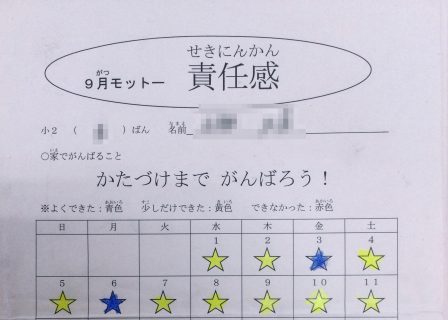 せきにんかん
がつ
９月モットー 責任感
なまえ
小２ （ ）ばん 名前
いえ
○家でがんばること
かたづけまで がんばろう！
あおいろ すこ きいろ あかいろ
※よくできた：青色 少しだけできた：黄色 できなかった：赤色
日 月 火 水 木 金 土
1 2 3 4
5 6 7 8 9 10 11